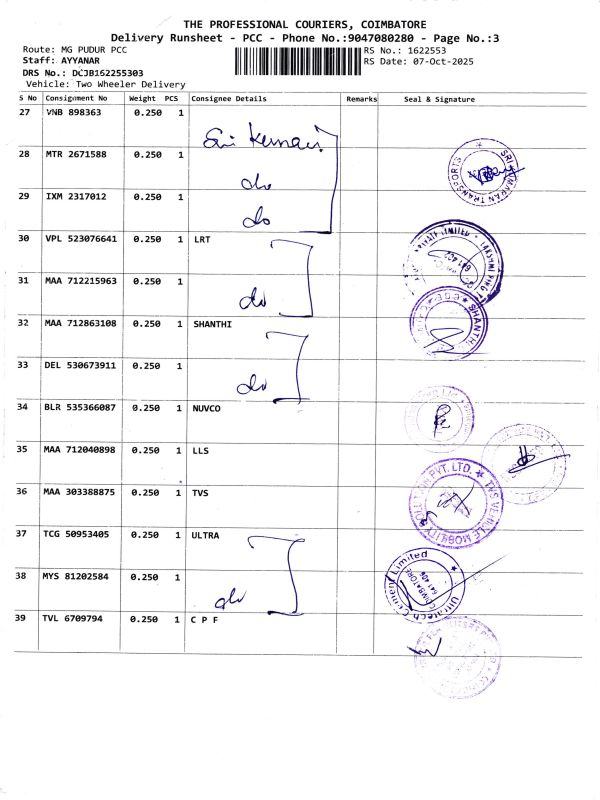 THE PROFESSIONAL COURIERS, COIMBATORE
Delivery Runsheet - PCC - Phone No.:9047080280 - Page No.:3
Route: MG PUDUR PCC RS No.: 1622553
Staff: AYYANAR RS Date: 07-Oct-2025
DRS No.: DCJB162255303
Vehicle: Two Wheeler Delivery
S No Consignment No Weight PCS Consignee Details Remarks Seal & Signature
27 VNB 898363 0.250 1
28 MTR 2671588 0.250 1
do
29 IXM 2317012 0.250 1
do
30 VPL 523076641 0.250 1 LRT
31 MAA 712215963 0.250 1
do
32 MAA 712863108 0.250 1 SHANTHI
33 DEL 530673911 0.250 1
do
34 BLR 535366087 0.250 1 NUVCO
35 MAA 712040898 0.250 1 LLS
36 MAA 303388875 0.250 1 TVS
TVS VEHICLE MOBILITY
PVT. LTD.
37 TCG 50953405 0.250 1 ULTRA
38 MYS 81202584 0.250 1
do
Ultratech Cement Limited
39 TVL 6709794 0.250 1 C P F